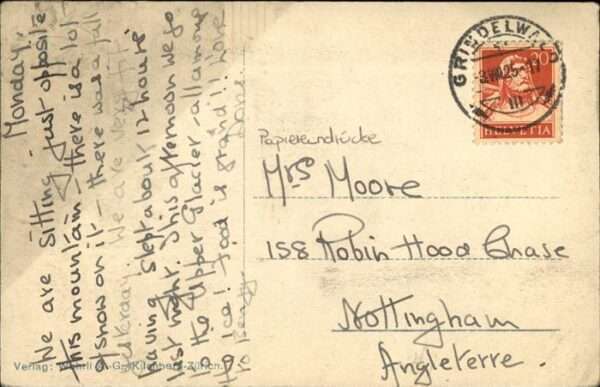 Monday.
We are sitting just opposite
this mountain - there is a lot
of snow on it - there was a fall
yesterday. We are very fit
having slept about 12 hours
last night. This afternoon we go
to the Upper Glacier - all among
the ice! Food is grand!! Love
to Benty
Verlag: Wehrli A.-G., Kilchberg-Zürich.
GRINDELWALD
3.VIII.25.-17
III
20
HELVETIA
Mrs Moore
158 Robin Hood Chase
Nottingham
Angleterre.